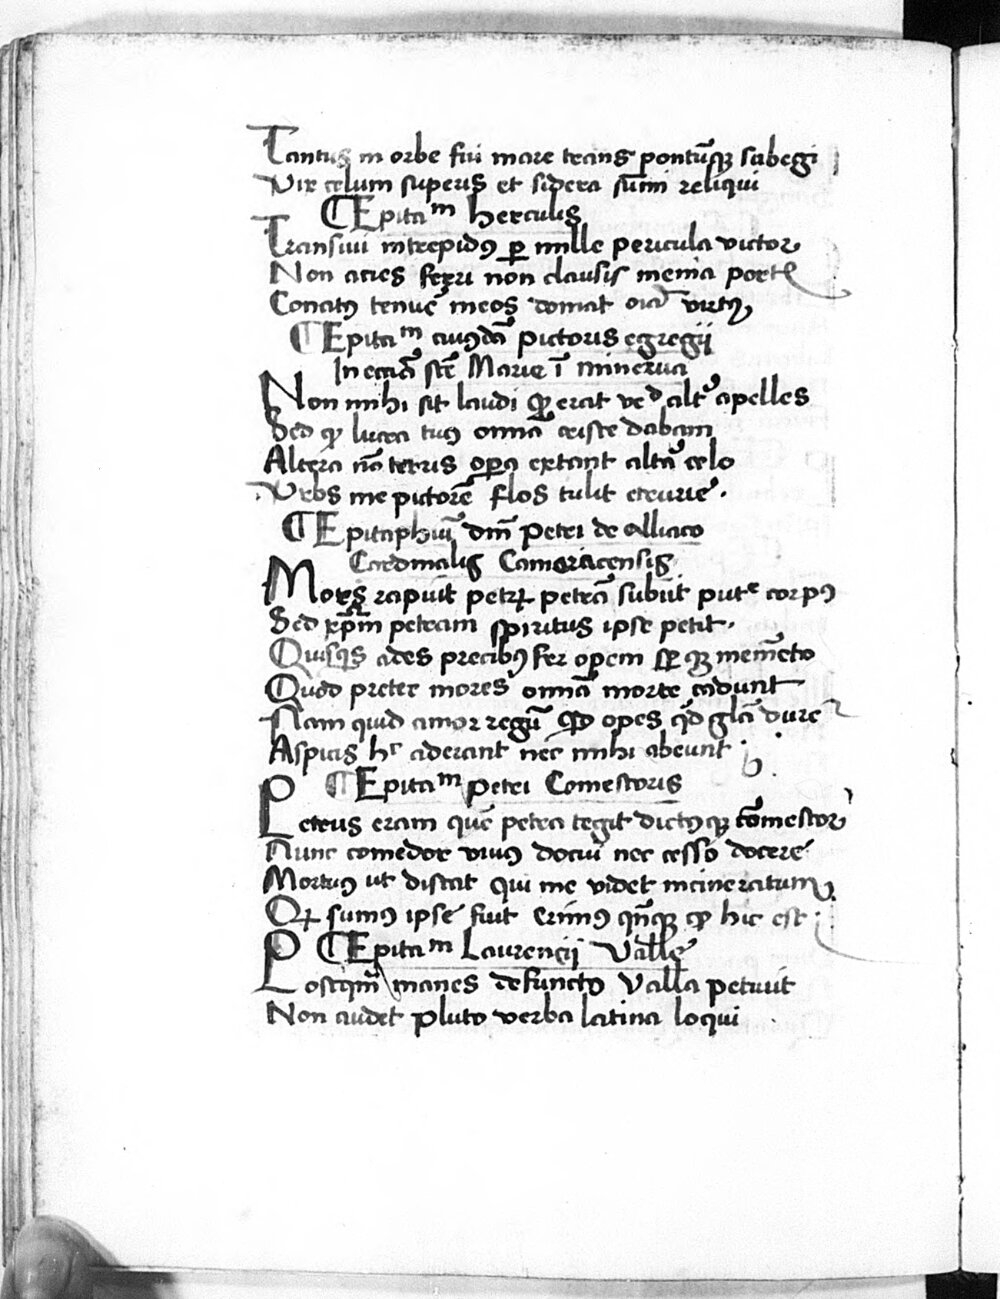 Tantus in orbe fui mare trans pontūqꝫ subegi
Vix celum superis et sidera sūmi reliqui
¶ Epitaᵐ herculis
Transiui intrepidꝰ ꝑ mille pericula victor
Non acies ferri non clausis menia port
Conatꝰ tenuē meos domat oīa virtꝰ
¶ Epitaᵐ cuiꝰdā pictoris egregij
In eccīa scē Marie ī minerua
Non mihi sit laudi ꝙ erat vᵉ altᵉ apelles
Sed ꝙ lucra tuis omnīa criste dabam
Altera nā terris opera extant altā celo
Vrbs me pictorē flos tulit etrurie.
¶ Epitaphiū dnī Petri de Alliaco
Cardinalis Camoracensis
Mors rapuit petrꝝ petrā subiit putᵉ corpꝰ
Sed xp̄m petram spiritus ipse petit.
Quisqs ades precibꝰ fer opem sꝑ qꝫ memēto
Quod preter mores omnīa morte cadunt
Nam quid amor regū qd opes qd glīa dure
Aspicis hᶜ aderant nec mihi abeunt
¶ Epitaᵐ Petri Comestoris
Petrus eram quē petra tegit dictꝰqꝫ cōmestor
Nunc comedor viuꝰ docui nec cesso docere
Mortuꝰ ut dicat qui me videt incineratum
Qꝝ sumꝰ ipse fuit erimꝰ qn̄qꝫ ꝙ hic est.
¶ Epitaᵐ Laurencij Valle
Postqm̄ manes defunctꝰ Valla petiuit
Non audet pluto verba latina loqui